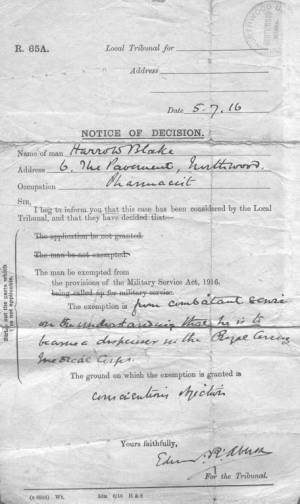 R. 65A. Local Tribunal for
Address
Date 5.7.16
NOTICE OF DECISION.
Name of man Harrow Blake
Address 6, The Pavement, Northwood.
Occupation Pharmacist
SIR,
I beg to inform you that this case has been considered by the Local
Tribunal, and that they have decided that—
The application be not granted.
The man be not exempted.
The man be exempted from
the provisions of the Military Service Act, 1916.
being called up for military service.
The exemption is from combatant service
on the understanding that he is to
become a dispenser in the Royal Army
Medical Corps.
The ground on which the exemption is granted is
conscientious objection
Yours faithfully,
For the Tribunal.
Wt. 6/16 H & S